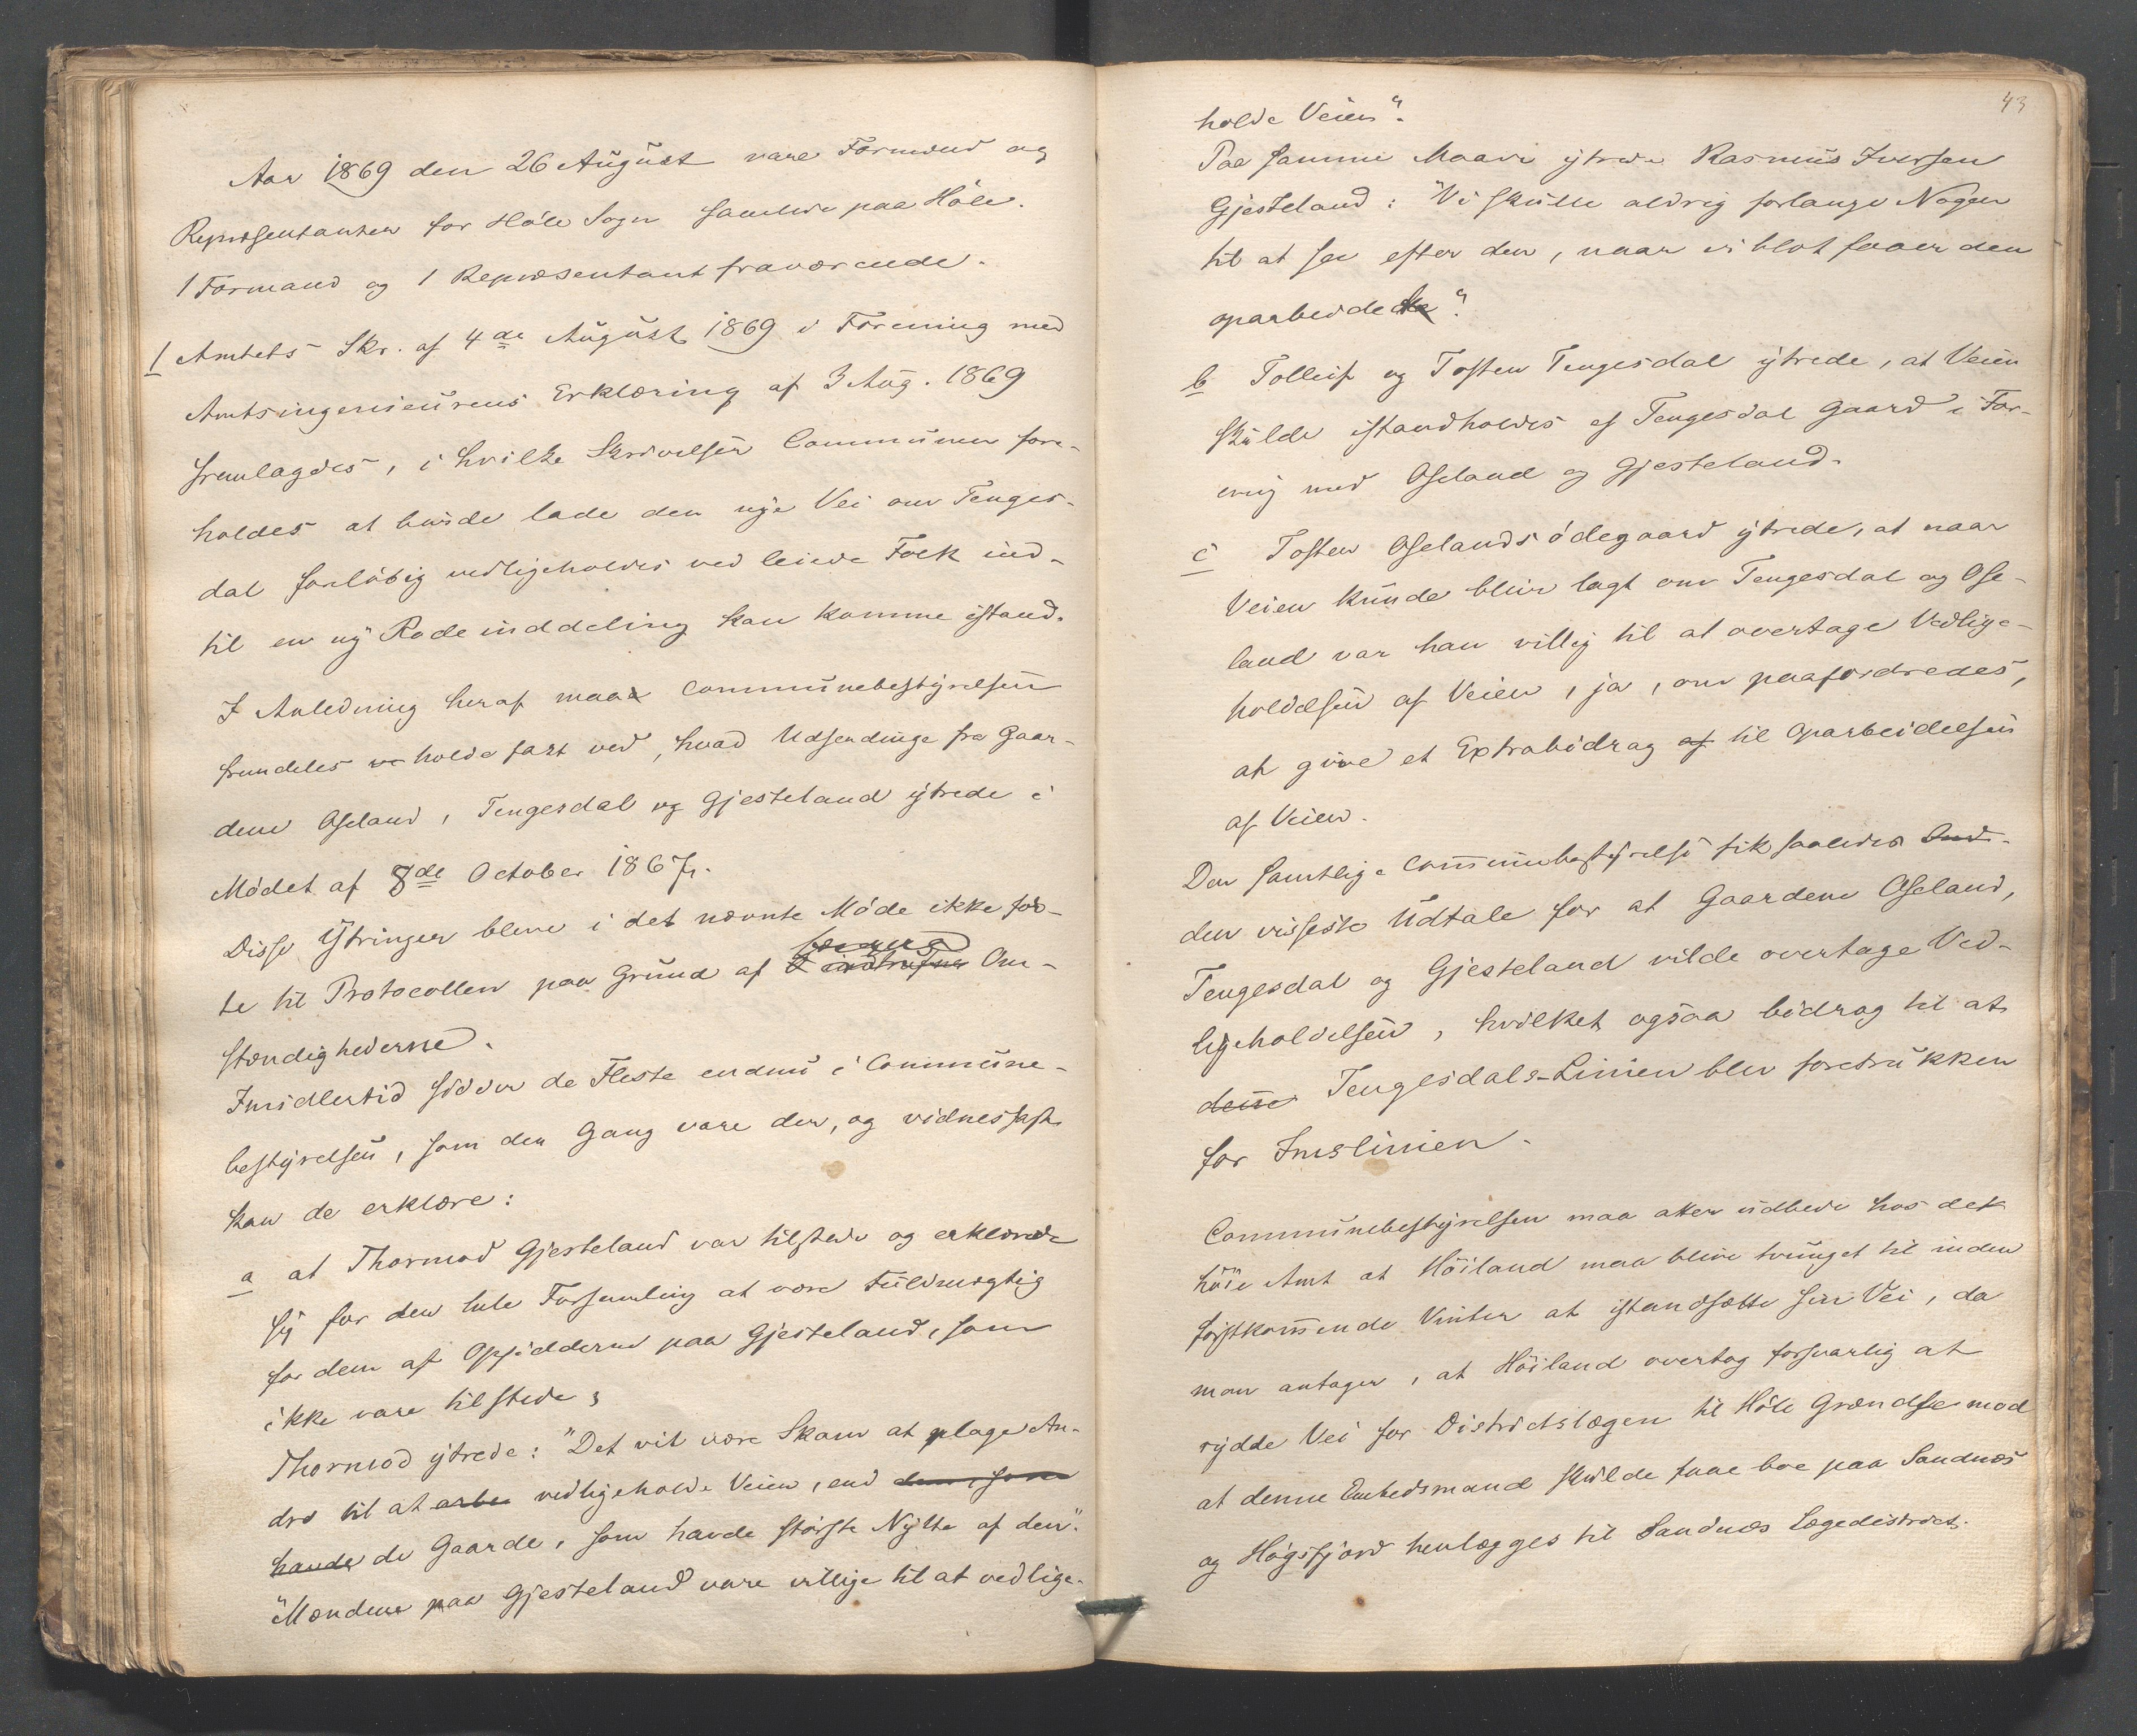 Aar 1869 den 26 August vare Formænd og
Repræsentanter for Höle Sogn samlede paa Höle.
1 Formand og 1 Repræsentant fraværende.
1 Amtets Skr. af 4de August 1869 i Forening med
Amtsingenieurens Erklæring af 3 Aug. 1869
fremlagdes, i hvilke Skrivelser Communen fore-
holdes at burde lade den nye Vei om Tenges-
dal forlöbig vedligeholdes ved leiede Folk ind-
til en ny Rodeinddeling kan komme istand.
I Anledning heraf maa Communebestyrelsen
fremdeles holde fast ved, hvad Udsendinge fra Gaar-
dene Oseland, Tengesdal og Gjesteland ytrede i
Mödet af 8de October 1867.
Disse Ytringer bleve i det nævnte Möde ikke för-
te til Protocollen paa Grund af Om-
stændighederne.
Imidlertid sidder de Fleste endnu i Commune-
bestyrelsen, som den Gang vare der, og vidnesfast
kan de erklære:
a at Thormod Gjesteland var tilstede og erklærede
sig for den hele Forsamling at være Fuldmægtig
for dem af Opsidderne paa Gjesteland, som
ikke vare tilstede;
Thormod ytrede: "Det vil være Skam at plage An-
dre til at arbe vedligeholde Veien, end dem, som
havde de Gaarde, som havde störste Nytte af den".
"Mændene paa Gjesteland vare villige til at vedlige-
43
holde Veien".
Paa samme Maade ytrede Rasmus Iversen
Gjesteland: "Vi skulle aldrig forlange Nogen
til at see efter den, naar vi blot faaer den
oparbeidet".
b Tolleif og Tosten Tengesdal ytrede, at Veien
skulde istandholdes af Tengesdal Gaard i For-
ening med Oseland og Gjesteland.
c Tosten Oselandsödegaard ytrede, at naar
Veien kunde blive lagt om Tengesdal og Ose-
land var han villig til at overtage Vedlige-
holdelsen af Veien, ja, om paafordredes,
at give et Extrabidrag af til Oparbeidelsen
af Veien.
Den samtlige Communebestyrelse fik saaledes
den visseste Udtale for at Gaardene Oseland,
Tengesdal og Gjesteland vilde overtage Ved-
ligeholdelsen, hvilket ogsaa bidrog til at
denne Tengesdals-Linien blev foretrukken
for Imslinien.
Communebestyrelsen maa atter udbede hos det
höie Amt at Höiland maa blive tvunget til inden
förstkommende Vinter at istandsætte sin Vei, da
man antager, at Höiland overtog forsvarlig at
rydde Vei for Districtslægen til Höle Grændse mod
at denne Embedsmand skulde faae boe paa Sandnæs
og Högsfjord henlægges til Sandnæs Lægedistrict.